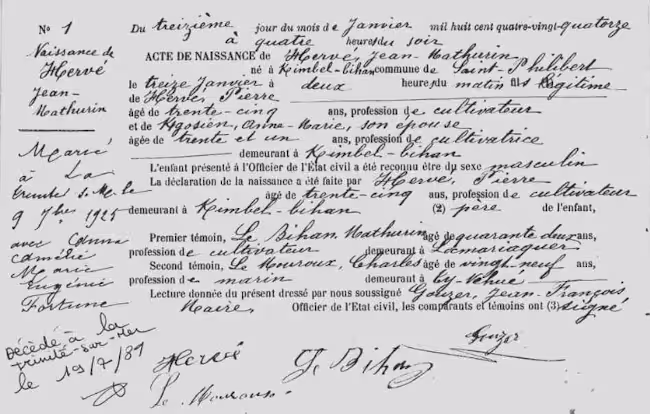 No 1
Naissance de
Hervé
Jean-
Mathurin
Marié
à La
Trinité s. M. le
9 7bre 1925
avec Anna
Camélie
Marie
Eugénie
Fortune
Décédé à la
Trinité-sur-Mer
le 19/7/81
Du treizième jour du mois de Janvier mil huit cent quatre-vingt-quatorze
à quatre heures du soir
ACTE DE NAISSANCE de Hervé, Jean-Mathurin
né à Kimbel-bihan commune de Saint-Philibert
le treize Janvier à deux heures du matin fils légitime
de Hervé, Pierre
âgé de trente-cinq ans, profession de cultivateur
et de Agosien, Anne-Marie, son épouse
âgée de trente et un ans, profession de cultivatrice
demeurant à Kimbel-bihan
L'enfant présenté à l'Officier de l'État civil a été reconnu être du sexe masculin
La déclaration de la naissance a été faite par Hervé, Pierre
âgé de trente-cinq ans, profession de cultivateur
demeurant à Kimbel-bihan (2) père de l'enfant,
Premier témoin, Le Bihan, Mathurin âgé de quarante deux ans,
profession de cultivateur demeurant à Lamariaquer
Second témoin, Le Mouroux, Charles âgé de vingt-neuf ans,
profession de marin demeurant à
Lecture donnée du présent dressé par nous soussigné Gouzer, Jean-François
Maire, Officier de l'Etat civil, les comparants et témoins ont (3) signé
Gouzer
Hervé Le Bihan
Le Mouroux